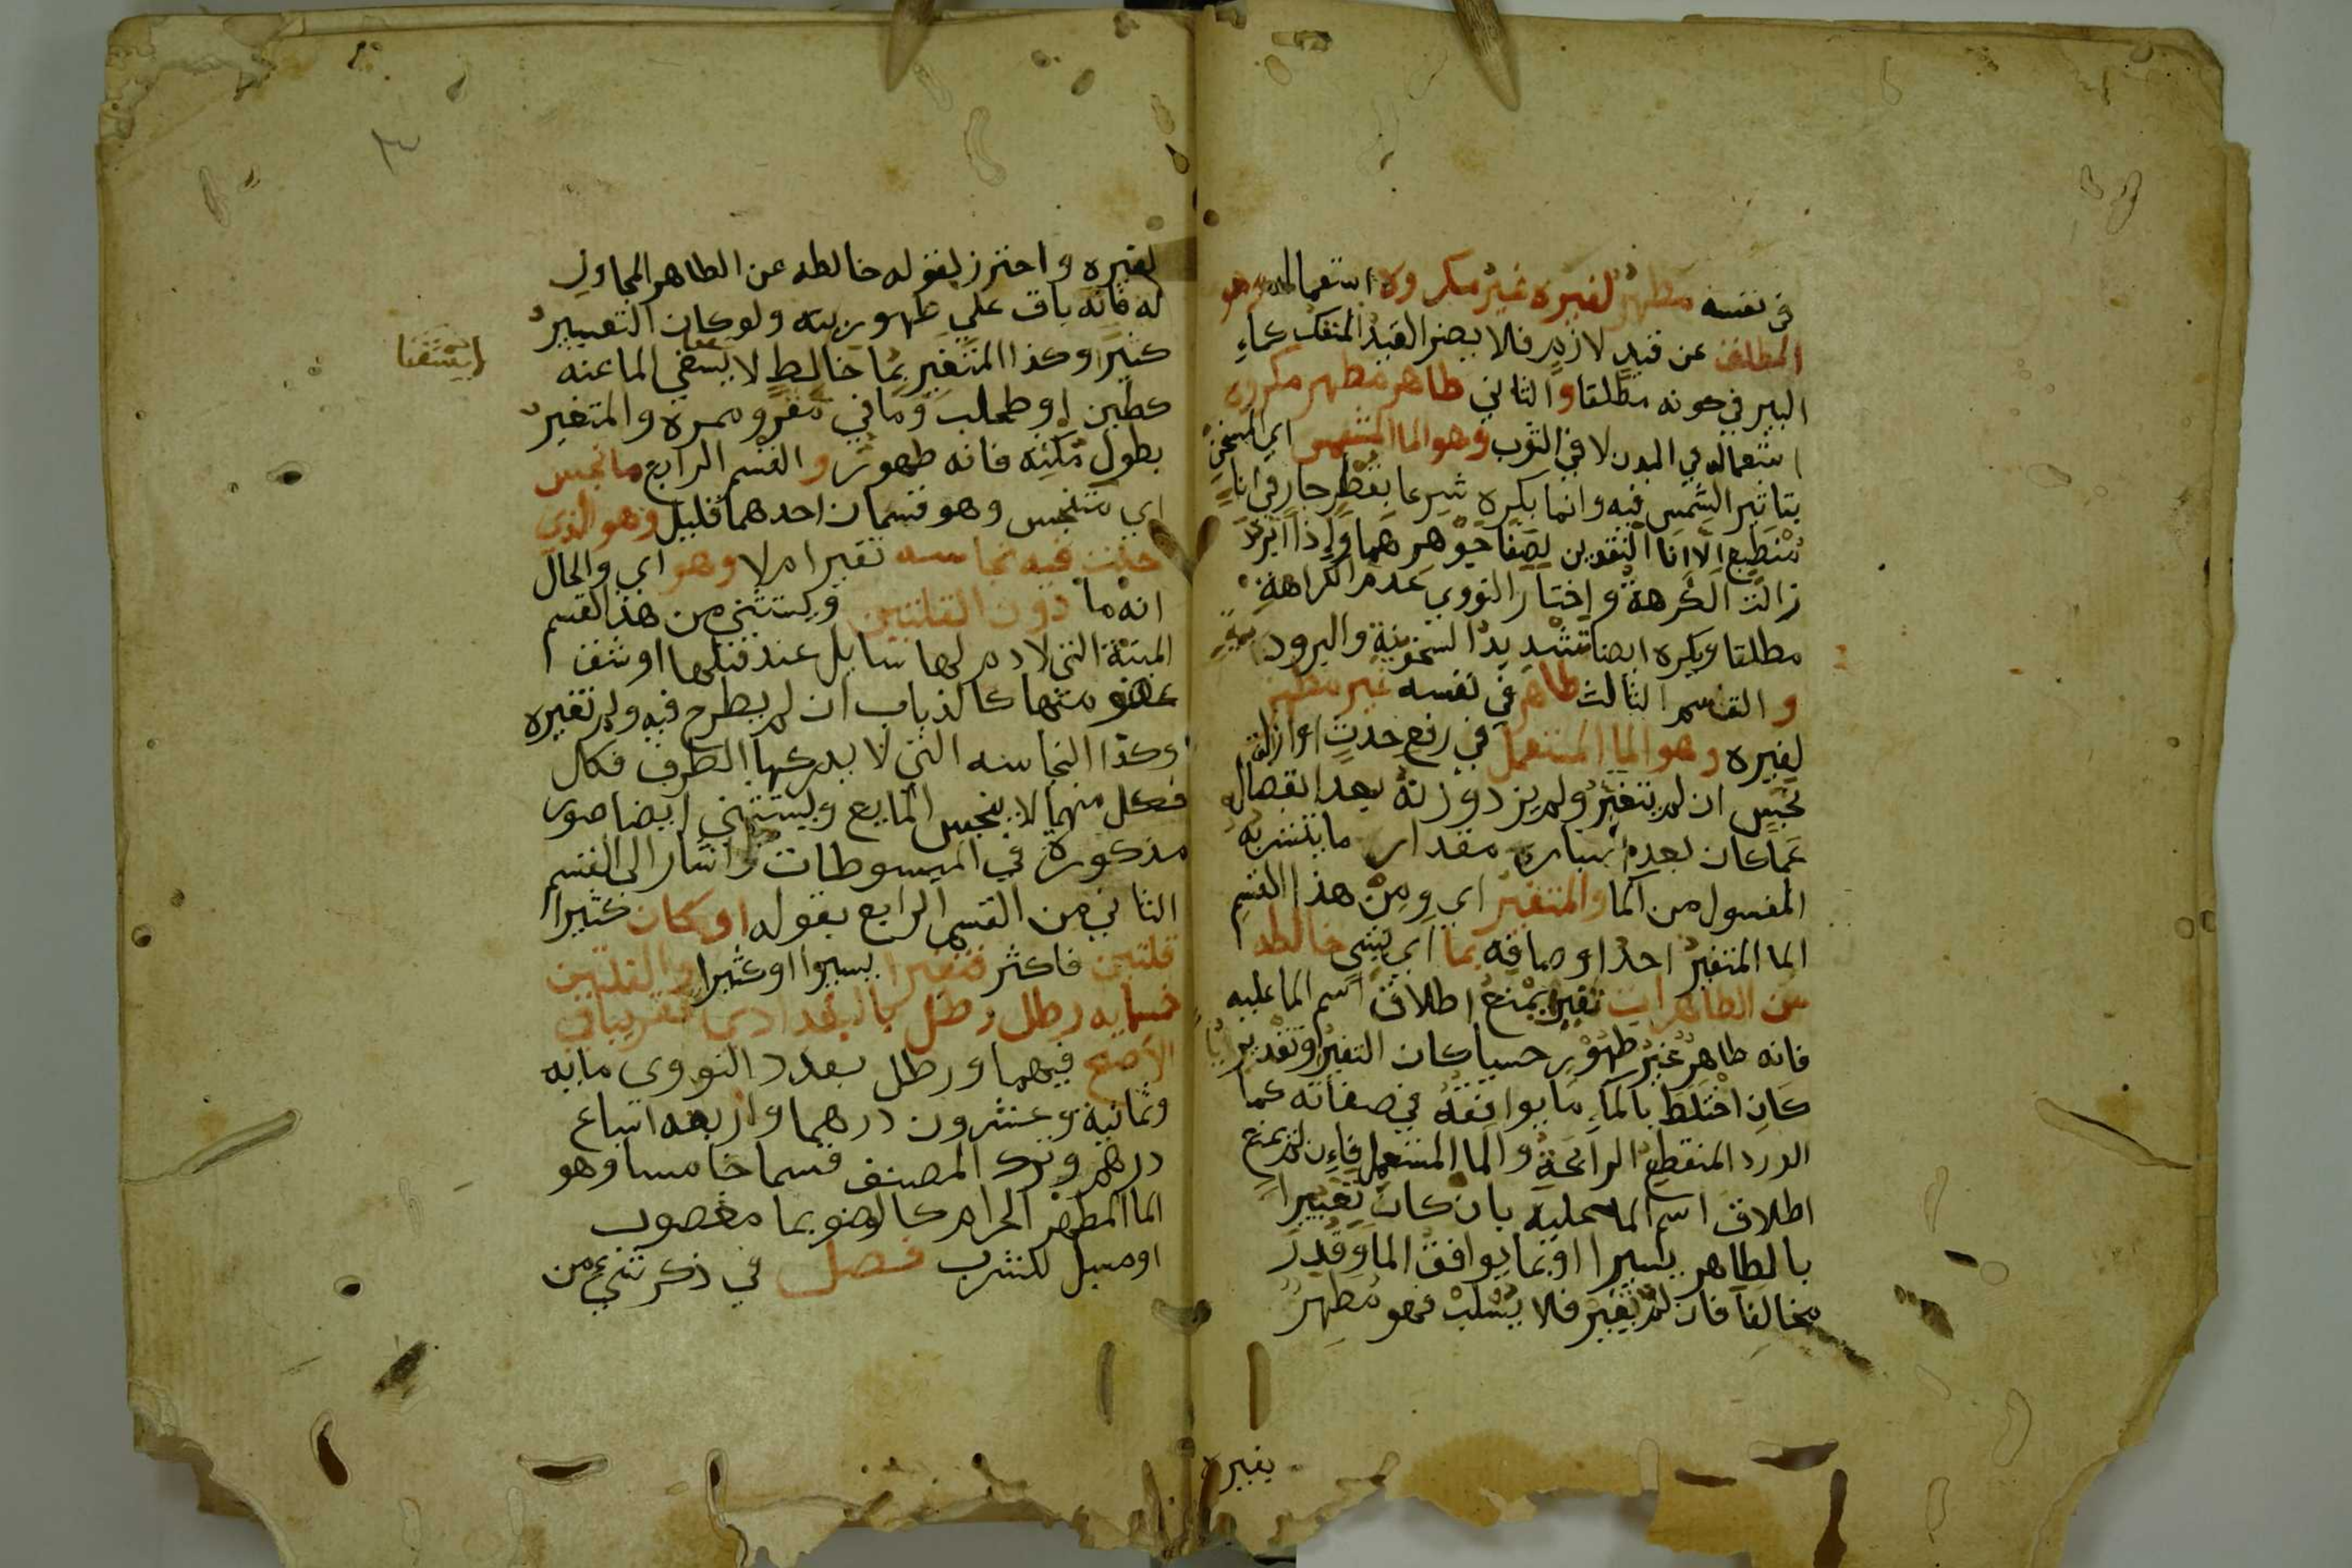 في نفسه مطهر لغيره غير مكروه استعماله وهو
المطلق عن قيد لازم فلا يضر القيد المنفك كماء
البير في كونه مطلقا والثاني طاهر مطهر مكروه
استعماله في البدن لا في الثوب وهو الما المشمس اي المسخن
بتاثير الشمس فيه وانما يكره شرعا بقطر حار في اناء
منطبع الا انا النقدين لصفا جوهرهما واذا ابرد
زالت الكرهة واختار النووي عدم الكراهة
مطلقا ويكره ايضا شديد السخونة والبرودة
والقسم الثالث طاهر في نفسه غير مطهر
لغيره وهو الما المستعمل في رفع حدث او ازالة
نجس ان لم يتغير ولم يزد وزنه بعد انفصاله
عما كان بعد اعتبار مقدار ما يتشربه
المغسول من الما والمتغير اي ومن هذا القسم
الما المتغير احد اوصافه بما اي بشي خالطه
من الطاهرات تغيرا يمنع اطلاق اسم الما عليه
فانه طاهر غير طهور حسيا كان التغير او تقديريا
كان اختلط بالماء ما يوافقه في صفاته كما
الورد المنقطع الرائحة والما المستعمل فاءن لم يمنع
اطلاق اسم الما عليه بان كان تغييرا
بالطاهر يسيرا او بما يوافق الما وقدر
مخالفا فان لم يغير فلا يسلب فهو مطهر
يغيره
لغيره واحترز بقوله خالطه عن الطاهر المجاور
له فانه باق علي طهوريته ولو كان التغيير
كثيرا وكذا المتغير بما خالط لا يستغني الما عنه
كطين او طحلب وما في مقره وممره والمتغير
بطول مكثه فانه طهور والقسم الرابع ما نجس
اي متنجس وهو قسمان احدهما قليل وهو الذي
حلت فيه نجاسه تغير ام لا وهو اي والحال
انه ما دون القلتين ويستثني من هذا القسم
الميتة التي لا دم لها سايل عند قتلها او شق
عضو منها كالذباب ان لم يطرح فيه ولم تغيره
وكذا النجاسه التي لا يدركها الطرف فكال
فكل منهما لا ينجس المايع ويستثني ايضا صور
مذكورة في المبسوطات واشار الى القسم
الثاني من القسم الرابع بقوله او كان كثيرا
قلتين فاكثر فتغير يسيرا او كثيرا والقلتين
خسمايه رطل رطل بالبغدادي تقريبا في
الاصح فيهما ورطل بغداد النووي مايه
وثمانية وعشرون درهما واربعه اسباع
درهم وترك المصنف قسما خامسا وهو
الما المطهر الحرام كالوضو بما مغصوب
او مسبل للشرب فصل في ذكر شي من